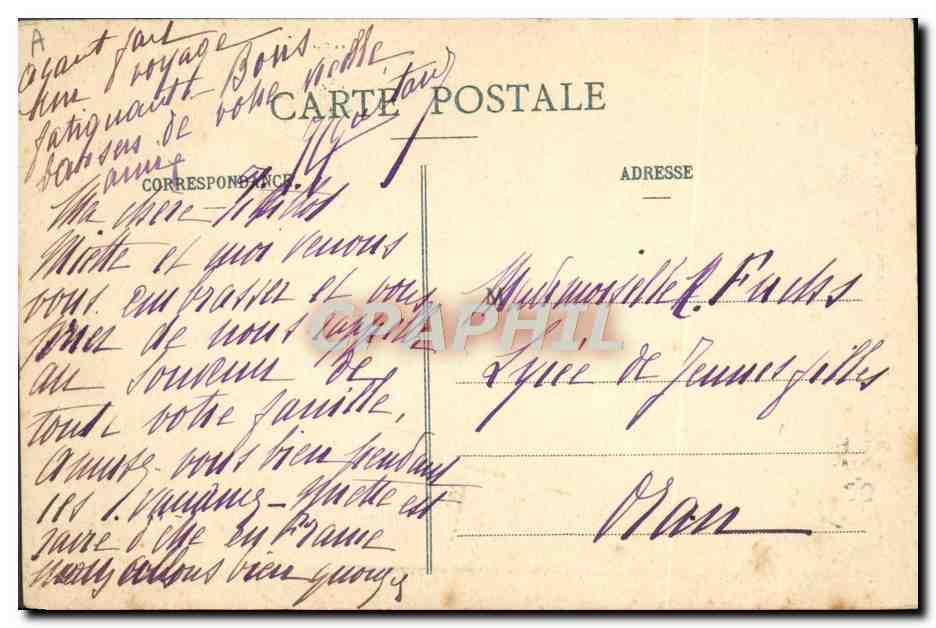 A
ayant fait
un voyage
fatiguant. Bons
baisers de votre vieille
amie
CARTE POSTALE
CORRESPONDANCE
Ma chère
Miette et moi venons
vous embrasser et vous
prier de nous rappeler
au souvenir de
toute votre famille,
amusez-vous bien pendant
les vacances - Miette est
ravie d'être en France
nous allons bien quoique
ADRESSE
Mademoiselle R. Fuchs
Lycée de Jeunes filles
Oran
CPAPHIL